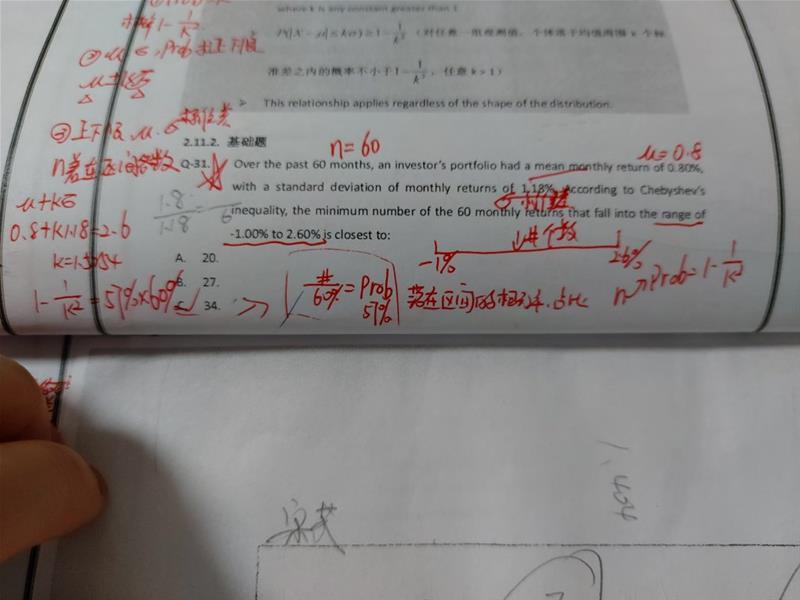 where k is any constant greater than 1
求概率 1-1/k²
P(|X-μ|≤kσ)≥1-1/k² (对任意一组观测值,个体落于均值周围 k 个标
准差之内的概率不小于1-1/k²,任意 k>1)
② μ σ, Prob 求上下限
➢ This relationship applies regardless of the shape of the distribution.
③ 上下限, μ, σ
2.11.2. 基础题
n=60
μ=0.8
n落在区间个数
Q-31. Over the past 60 months, an investor's portfolio had a mean monthly return of 0.80%,
with a standard deviation of monthly returns of 1.18%. According to Chebyshev's
inequality, the minimum number of the 60 monthly returns that fall into the range of
-1.00% to 2.60% is closest to:
μ+kσ
0.8+k1.18=2.6
k=1.5254
1-1/k²=57%×60%
1.8/1.18=
6
σ 标准差
↓#个数
-1%
2.6%
A. 20.
B. 27.
C. 34.
#/60%=Prob
57%
落在区间的概率
n→Prob=1-1/k²
1.404